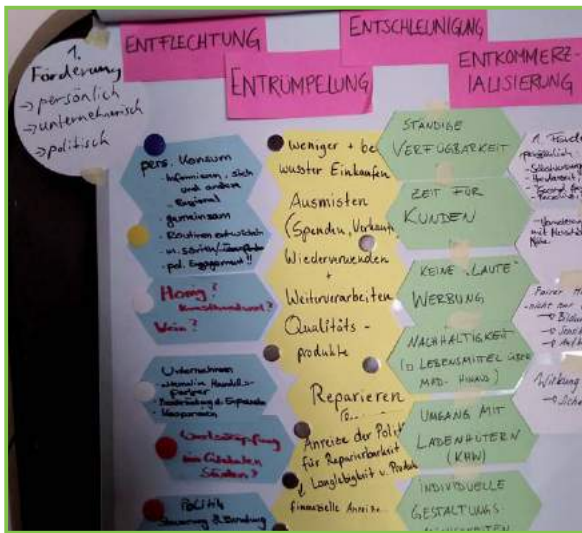 1.
Förderung
→ persönlich
→ unternehmerisch
→ politisch
ENTFLECHTUNG
ENTRÜMPELUNG
ENTSCHLEUNIGUNG
ENTKOMMERZ-
IALISIERUNG
pers. Konsum
- informieren, sich
und andere
- Regional
- gemeinsam
- Routinen entwickeln
- pol. Engagement!!
Honig?
Wein?
Unternehmen
- alternative Handels-
partner
- Kooperationen
Wertschöpfung
im Globalen
Süden?
Politik
Steuerung & Beratung
weniger + be-
wusster Einkaufen
Ausmisten
(Spenden, Verkaufen
Wiederverwenden
+
Weiterverarbeiten
Qualitäts-
produkte
Reparieren
Anreize der Polit
für Reparierbarkeit
↓ Langlebigkeit v. Produk
finanzielle Anreize...
STÄNDIGE
VERFÜGBARKEIT
ZEIT FÜR
KUNDEN
KEINE „LAUTE"
WERBUNG
NACHHALTIGKEIT
(□ LEBENSMITTEL ÜBER
MHD- HINAUS)
UMGANG MIT
LADENHÜTERN
(KHW)
INDIVIDUELLE
GESTALTUNGS
1. Förde
persönlich
Fairer H
- nicht nur
→ Bildu
Wirkung